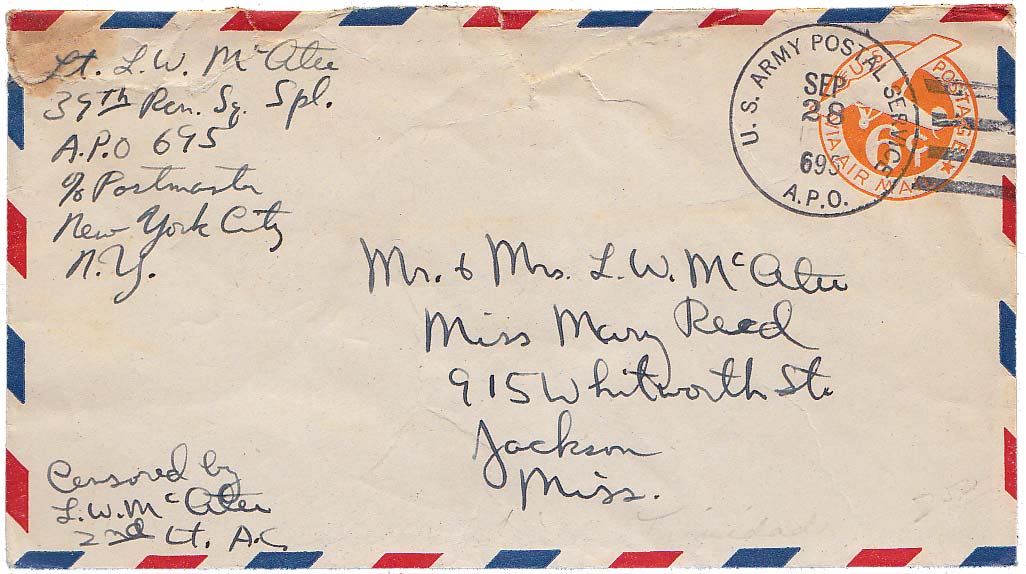 Lt. L.W. McAtee
39th Ren. Sq. Spl.
A.P.O 695
c/o Postmaster
New York City
N.Y.
U.S. ARMY POSTAL SERVICE
SEP
28
695
A.P.O.
U.S. POSTAGE
6¢
VIA AIR MAIL
Mr. & Mrs. L.W. McAtee
Miss Mary Reed
915 Whitworth St.
Jackson
Miss.
Censored by
L.W. McAtee
2nd Lt. A.C.